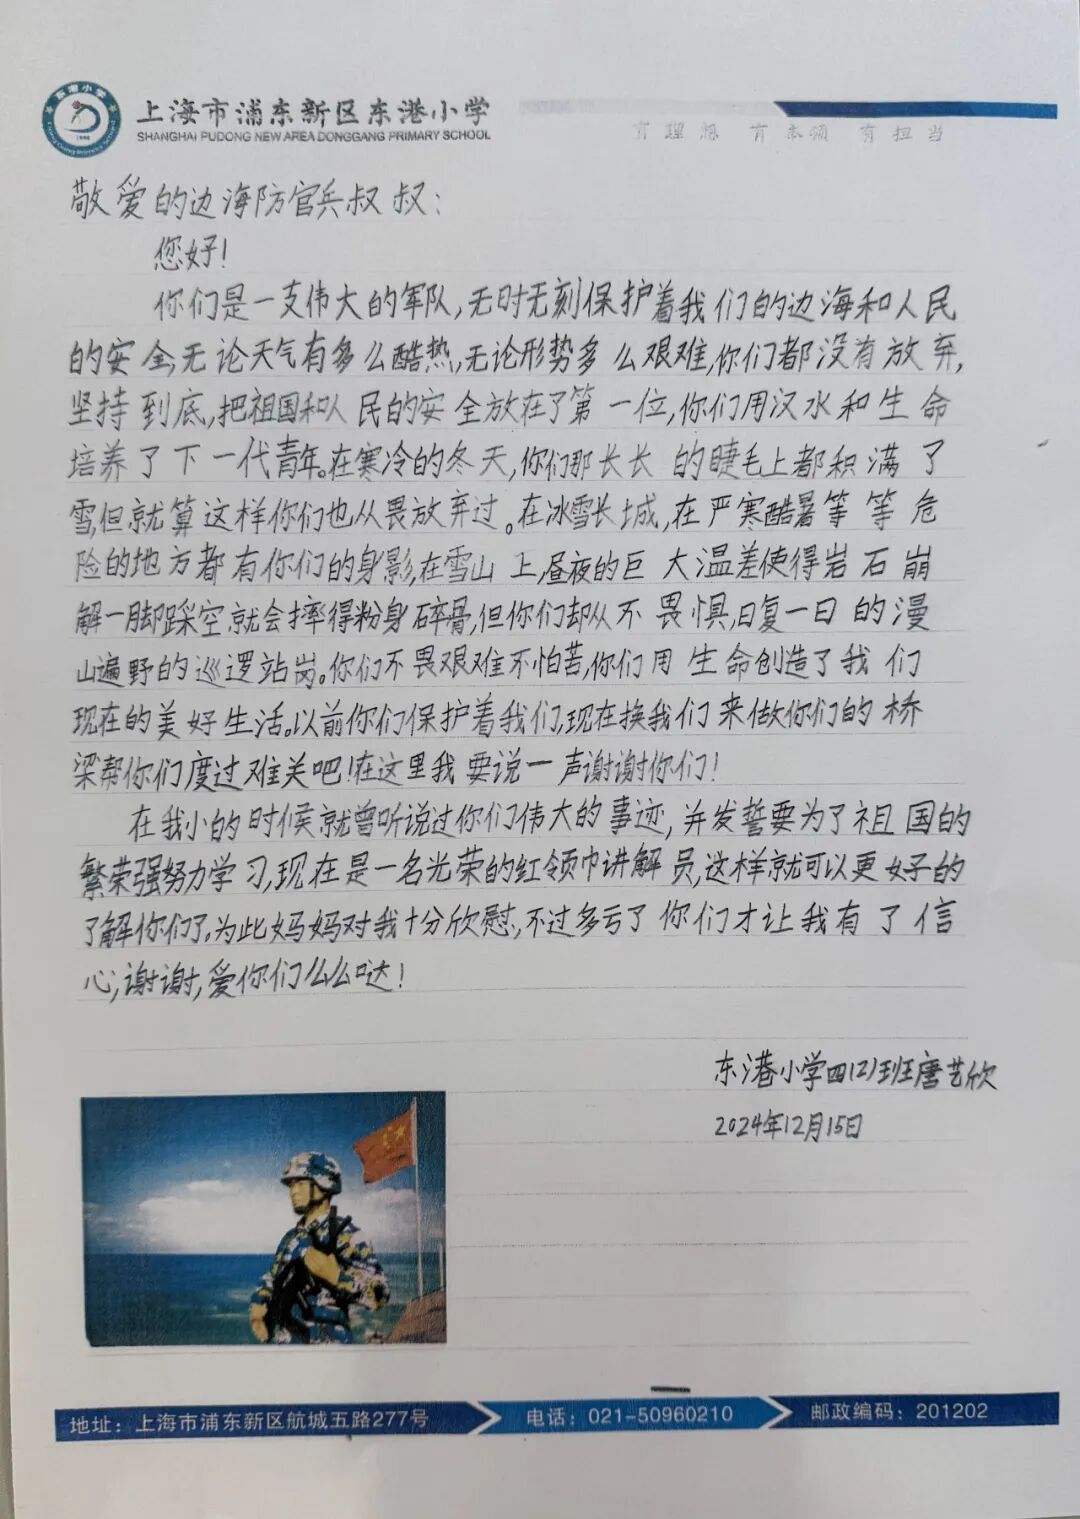 上海市浦东新区东港小学
SHANGHAI PUDONG NEW AREA DONGGANG PRIMARY SCHOOL
有理想 有本领 有担当
敬爱的边海防官兵叔叔：
您好！
你们是一支伟大的军队，无时无刻保护着我们的边海和人民
的安全，无论天气有多么酷热，无论形势多么艰难，你们都没有放弃，
坚持到底，把祖国和人民的安全放在了第一位，你们用汉水和生命
培养了下一代青年。在寒冷的冬天，你们那长长的睫毛上都积满了
雪，但就算这样你们也从畏放弃过。在冰雪长城，在严寒酷暑等等危
险的地方都有你们的身影，在雪山上，昼夜的巨大温差使得岩石崩
解一脚踩空就会摔得粉身碎骨，但你们却从不畏惧，日复一日的漫
山遍野的巡逻站岗。你们不畏艰难不怕苦，你们用生命创造了我们
现在的美好生活。以前你们保护着我们，现在换我们来做你们的桥
梁帮你们度过难关吧！在这里我要说一声谢谢你们！
在我小的时候就曾听说过你们伟大的事迹，并发誓要为了祖国的
繁荣强努力学习，现在是一名光荣的红领巾讲解员，这样就可以更好的
了解你们了，为此妈妈对我十分欣慰，不过多亏了你们才让我有了信
心，谢谢，爱你们么么哒！
东港小学四（2）班唐艺欣
2024年12月15日
地址：上海市浦东新区航城五路277号
电话：021-50960210
邮政编码：201202